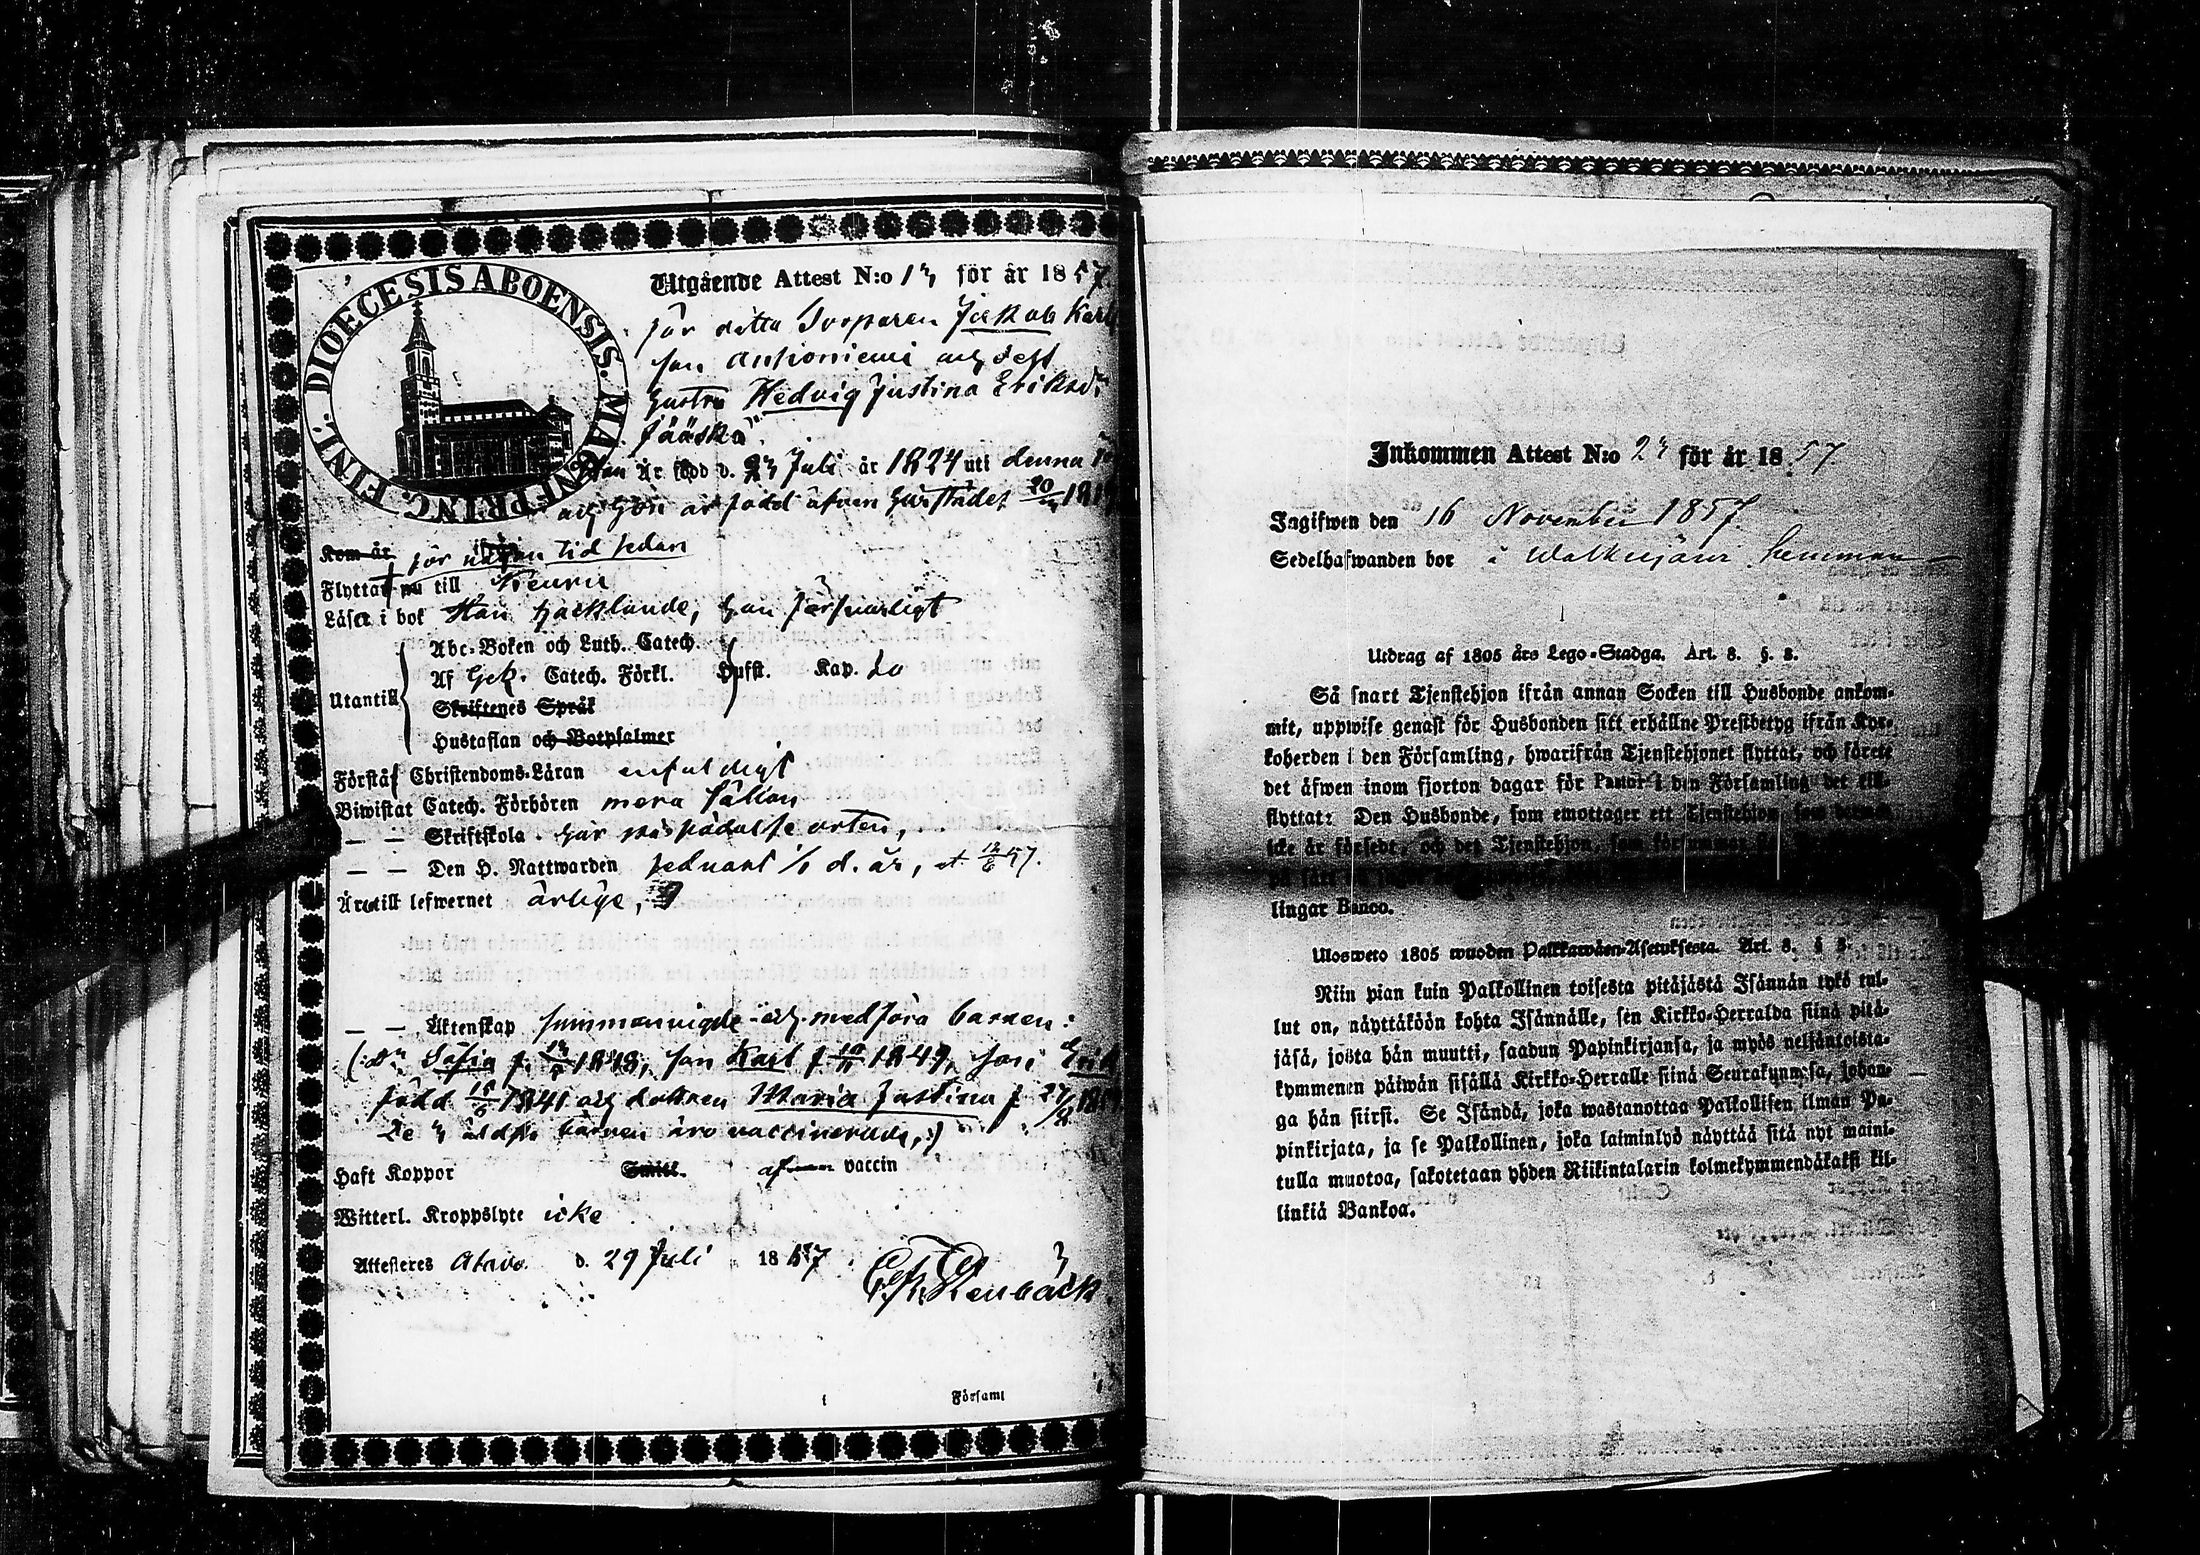 DIOECESIS ABOENSIS. MAGNI PRINC. FINL.
Utgående Attest N:o 13 för år 1857.
för detta Torparen Jakob Karls
son Antioniemi och dess
hustru Hedvig Justina Eriksdr
Jääskä
Han är född d. 23 Juli år 1824 uti denna
och hon är född äfven härstädes
Kom år för någon tid sedan
Flyttat nu till Keuru
Läser i bok Han hacklande, hon försvarligt
Abc-Boken och Luth. Catech.
Af Geb. Catech. Förkl. Hufst. Kap.
Utantill
Skriftenes Språk
Hustaflan och Botpsalmer
Förstå Christendoms-Läran enfaldigt
Biwistat Catech. Förhören mera sällan
— — Skriftskola
— — Den H. Nattwarden sednast 1/1 d. år, 57.
Är till lefwernet ärlige,
— — Äktenskap sammanvigde och medföra barnen:
Sofia f. 1843, son Karl f. 1849, son Erik
född 1841 och dottren Maria Justina f. 27/2
De 3 äldsta barnen äro vaccinerade,
Haft Koppor Smitt. af vaccin
Witterl. Kroppslyte icke
Attesteras Atavo d. 29 Juli 1857
Församl
Inkommen Attest N:o 23 för år 1857.
Ingifwen den 16 November 1857.
Sedelhafwanden bor i Walkujärvi hemman
Utdrag af 1805 års Lego-Stadga. Art. 8. §. 8.
Så snart Tjenstehjon ifrån annan Socken till Husbonde ankom-
mit, uppwise genast för Husbonden sitt erhållne Prestbetyg ifrån Kyr-
koherden i den Församling, hwarifrån Tjenstehjonet flyttat, och förete
det äfwen inom fjorton dagar för Pastor i den Församling det till-
flyttat: Den Husbonde, som emottager ett Tjenstehjon, som dermed
icke är försedt, och det Tjenstehjon, som försummar
på sätt
lingar Banco.
Ulosweto 1805 wuoden Palkkawäen-Asetuksesta. Art. 8. § 8.
Niin pian kuin Palkollinen toisesta pitäjästä Isännän tykö tul-
lut on, näyttäköön kohta Isännälle, sen Kirkko-Herralda siinä pitä-
jäsä, josta hän muutti, saadun Papinkirjansa, ja myös neljäntoista-
kymmenen päiwän sisällä Kirkko-Herralle siinä Seurakunnasa, johon-
ga hän siirsi. Se Isändä, joka wastanottaa Palkollisen ilman Pa-
pinkirjata, ja se Palkollinen, joka laiminlyö näyttää sitä nyt maini-
tulla muotoa, sakotetaan yhden Riikintalarin kolmekymmendäkaksi kil-
linkiä Bankoa.